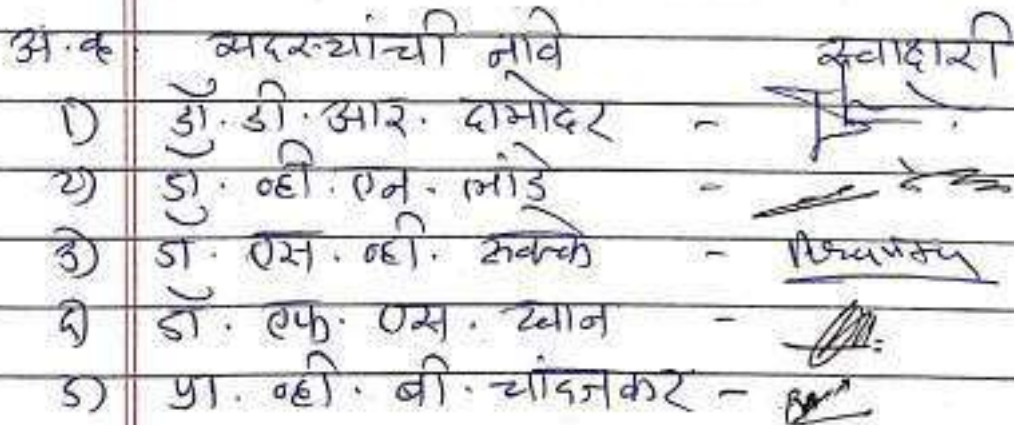 अ.क्र. सदस्यांची नावे स्वाक्षरी
१) डॉ. डी. आर. दामोदर -
२) डॉ. व्ही. एन. लांडे -
३) डॉ. एस. व्ही. -
४) डॉ. एफ. एस. खान -
५) प्रा. व्ही. बी. चांदजकर -